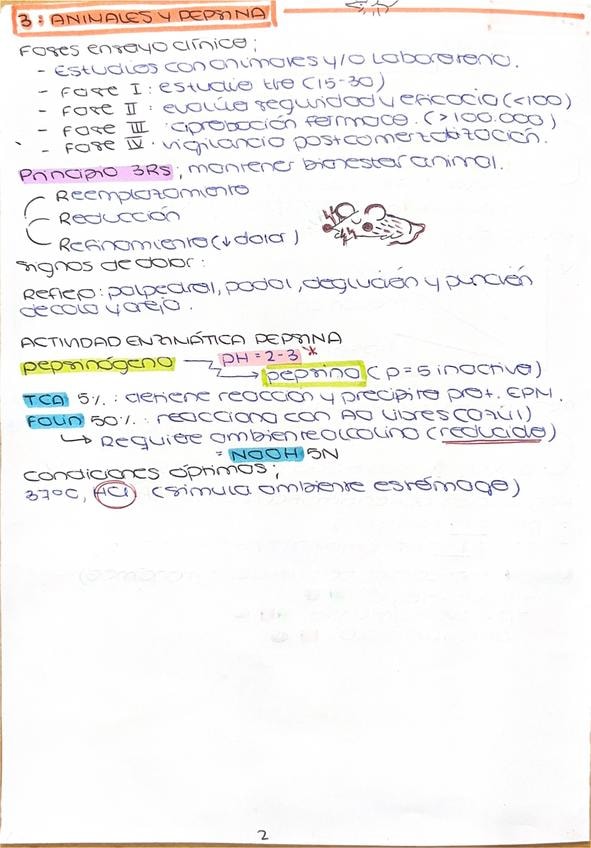 3: ANIMALES Y PEPSINA
Fases ensayo clínico;
- Estudios con animales y/o laboratorio.
- Fase I: estudio tre (15-30)
- Fase II: evalúa seguridad y eficacia (<100)
- Fase III: aprobación fármaco. (>100.000)
- Fase IV: vigilancia postcomerzatización.
Principio 3Rs; mantener bienestar animal.
Reemplazamiento
Reducción
Refinamiento (↓ dolor)
Signos de dolor:
Reflejo: palpedral, podal, deglución y punción
de cola y oreja.
ACTIVIDAD ENZIMÁTICA PEPSINA
pepsinógeno → pH = 2-3 *
pepsina (p=5 inactiva)
TCA 5%.: detiene reacción y precipita prot. EPM.
FOLIN 50%.: reacciona con AA libres (azul)
↳ Requiere ambiente alcalino (reducido)
= NaOH 5N
Condiciones óptimas;
37ºC, HCl (simula ambiente estómago)
2